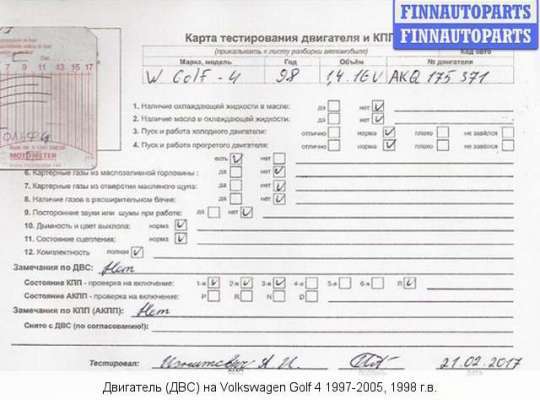 FINNAUTOPARTS
FINNAUTOPARTS
Карта тестирования двигателя и КПП
(прикалывать к листу разборки автомобиля)
Код авто
Марка, модель Год Объём № двигателя
W Golf-4 98 1,4 16V AKQ 175 371
7 9 11 13 15 17
MOTOMETER
1. Наличие охлаждающей жидкости в масле: да нет
2. Наличие масла в охлаждающей жидкости: да нет
3. Пуск и работа холодного двигателя: отлично норма плохо не завёлся
4. Пуск и работа прогретого двигателя: отлично норма плохо не завёлся
есть нет
6. Картерные газы из маслозаливной горловины: да нет
7. Картерные газы из отверстия масляного щупа: да нет
8. Наличие газов в расширительном бачке: да нет
9. Посторонние звуки или шумы при работе: да нет
10. Дымность и цвет выхлопа: норма
11. Состояние сцепления: норма
12. Комплектность полная
Замечания по ДВС: Нет
Состояние КПП - проверка на включение: 1-я 2-я 3-я 4-я 5-я 6-я R
Состояние АКПП - проверка на включение: P R N D
Замечания по КПП (АКПП): Нет
Снято с ДВС (по согласованию!):
Тестировал: Игнатович А. И. 21.02.2017
Двигатель (ДВС) на Volkswagen Golf 4 1997-2005, 1998 г.в.